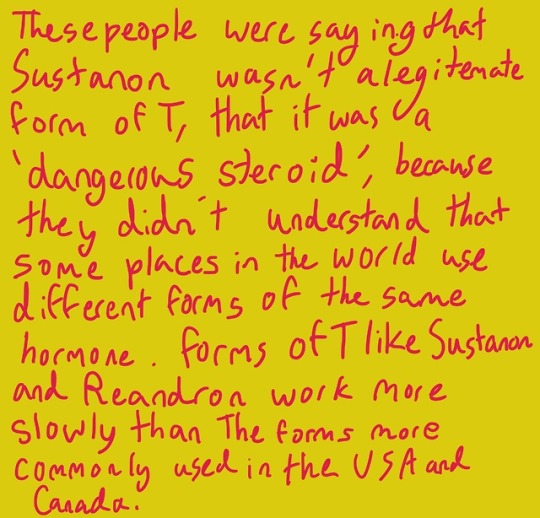 These people were saying that
Sustanon wasn't a legitemate
form of T, that it was a
'dangerous steroid', because
they didn't understand that
some places in the world use
different forms of the same
hormone. forms of T like Sustanon
and Reandron work more
slowly than The forms more
commonly used in the USA and
Canada.